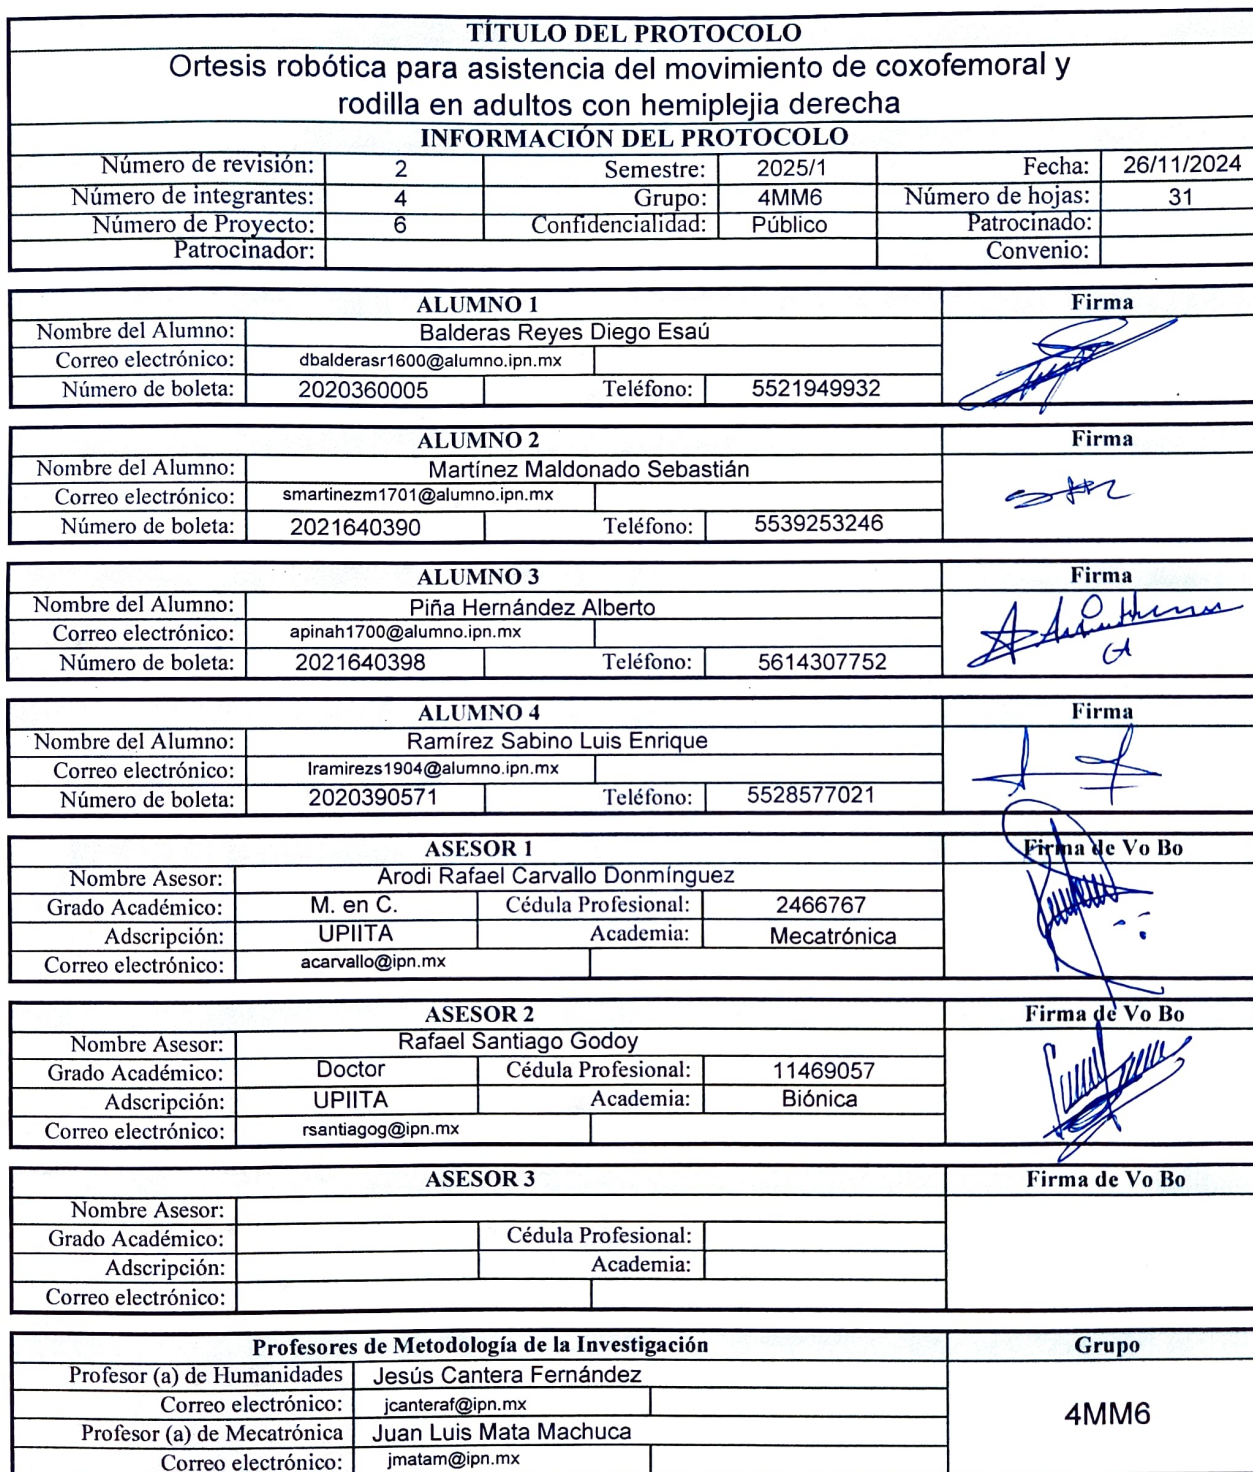 TÍTULO DEL PROTOCOLO
Ortesis robótica para asistencia del movimiento de coxofemoral y
rodilla en adultos con hemiplejia derecha
INFORMACIÓN DEL PROTOCOLO
Número de revisión: 2 Semestre: 2025/1 Fecha: 26/11/2024
Número de integrantes: 4 Grupo: 4MM6 Número de hojas: 31
Número de Proyecto: 6 Confidencialidad: Público Patrocinado:
Patrocinador: Convenio:
ALUMNO 1 Firma
Nombre del Alumno: Balderas Reyes Diego Esaú
Correo electrónico: dbalderasr1600@alumno.ipn.mx
Número de boleta: 2020360005 Teléfono: 5521949932
ALUMNO 2 Firma
Nombre del Alumno: Martínez Maldonado Sebastián
Correo electrónico: smartinezm1701@alumno.ipn.mx
Número de boleta: 2021640390 Teléfono: 5539253246
ALUMNO 3 Firma
Nombre del Alumno: Piña Hernández Alberto
Correo electrónico: apinah1700@alumno.ipn.mx
Número de boleta: 2021640398 Teléfono: 5614307752
ALUMNO 4 Firma
Nombre del Alumno: Ramírez Sabino Luis Enrique
Correo electrónico: lramirezs1904@alumno.ipn.mx
Número de boleta: 2020390571 Teléfono: 5528577021
ASESOR 1 Firma de Vo Bo
Nombre Asesor: Arodi Rafael Carvallo Donmínguez
Grado Académico: M. en C. Cédula Profesional: 2466767
Adscripción: UPIITA Academia: Mecatrónica
Correo electrónico: acarvallo@ipn.mx
ASESOR 2 Firma de Vo Bo
Nombre Asesor: Rafael Santiago Godoy
Grado Académico: Doctor Cédula Profesional: 11469057
Adscripción: UPIITA Academia: Biónica
Correo electrónico: rsantiagog@ipn.mx
ASESOR 3 Firma de Vo Bo
Nombre Asesor:
Grado Académico: Cédula Profesional:
Adscripción: Academia:
Correo electrónico:
Profesores de Metodología de la Investigación Grupo
Profesor (a) de Humanidades Jesús Cantera Fernández
Correo electrónico: jcanteraf@ipn.mx
4MM6
Profesor (a) de Mecatrónica Juan Luis Mata Machuca
Correo electrónico: jmatam@ipn.mx